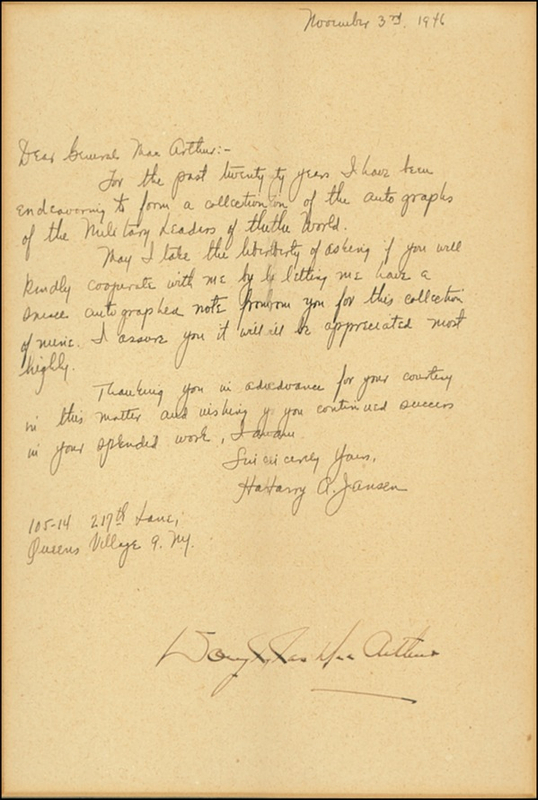 November 3rd, 1946
Dear General Mac Arthur:-
For the past twenty ty years I have been
endeavoring to form a collection on of the auto graphs
of the Military Leaders of thethe World.
May I take the liberberty of asking if you will
kindly cooperate with me by by letting me have a
autographed note fromrom you for this collection
of mine. I assure you it will ill be appreciated most
highly.
Thanking you in advedvance for your courtesy
in this matter and wishing y you continued success
in your splendid work, I amam
Sin cincerely Yours,
HaHarry A. Jansen
105-14 217th Lane,
Queens Village 9. NY.
Douglas Mac Arthur